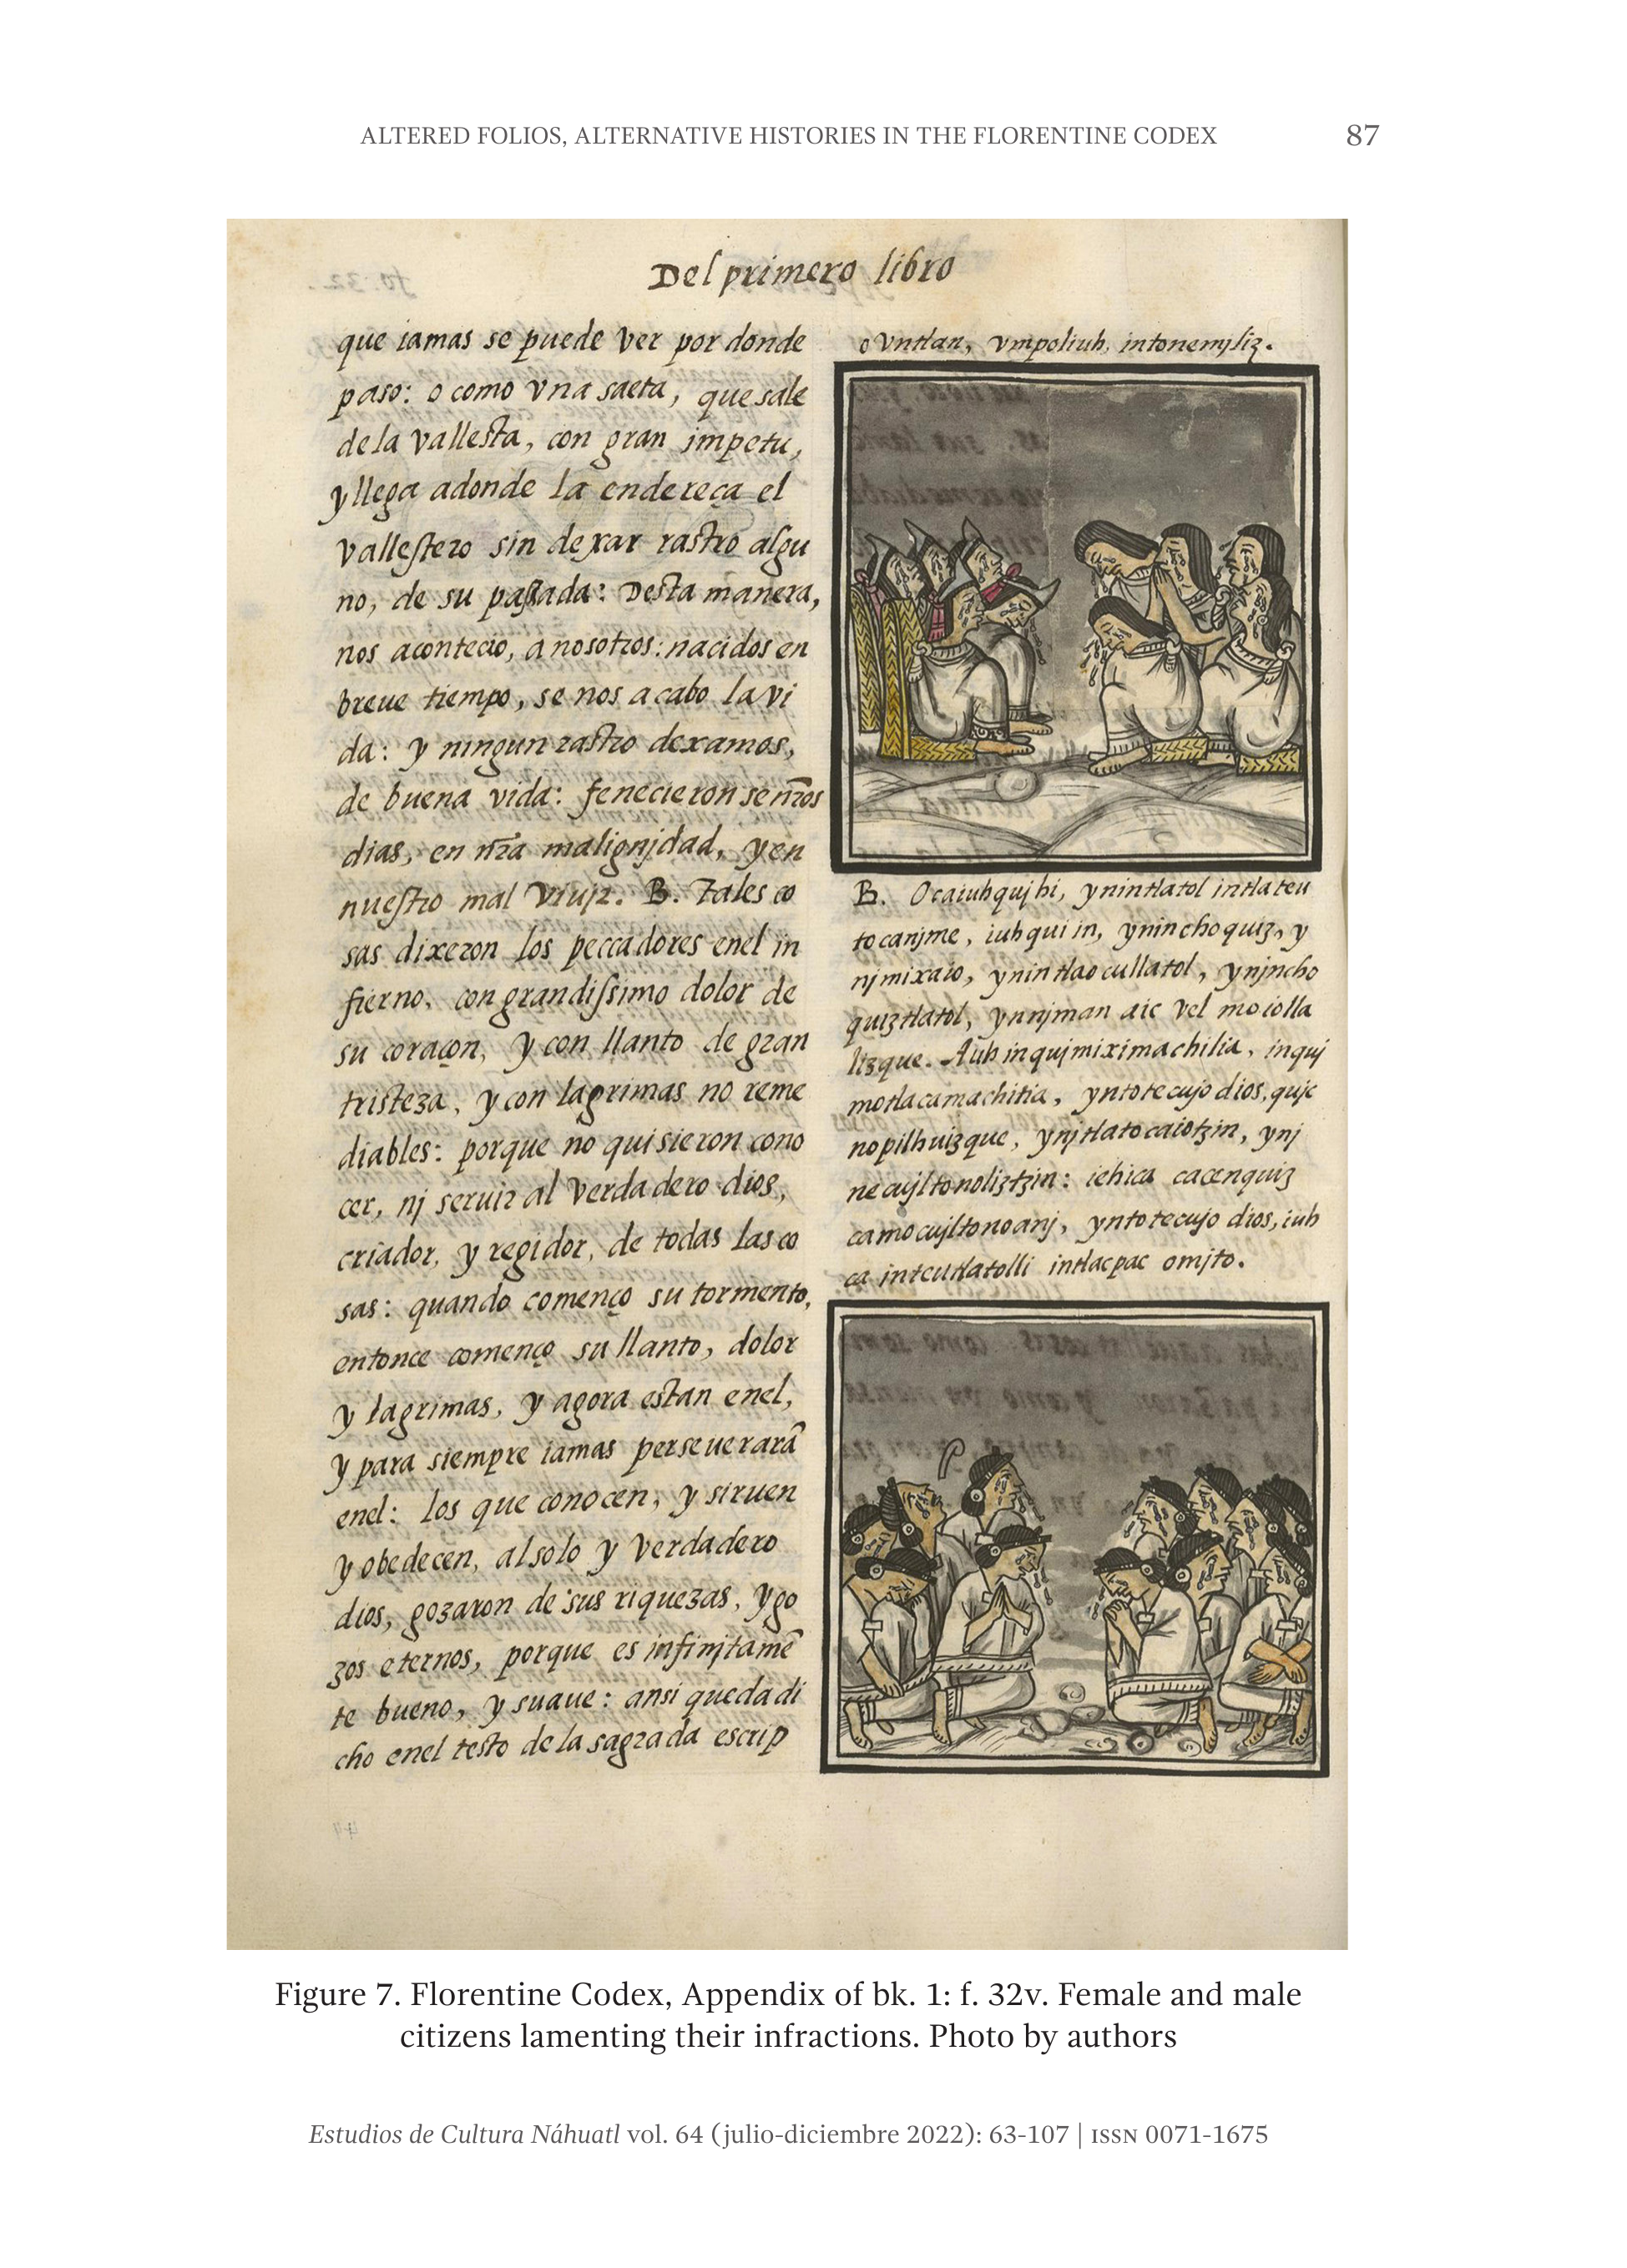 ALTERED FOLIOS, ALTERNATIVE HISTORIES IN THE FLORENTINE CODEX 87
Del primero libro
que iamas se puede ver por donde
paso: o como vna saeta, que sale
de la vallesta, con gran impetu,
y llega adonde la endereça el
vallestero sin dexar rastro algu
no, de su passada: Desta manera,
nos acontecio, a nosotros: nacidos en
breue tiempo, se nos acabo la vi
da: y ningun rastro dexamos,
de buena vida: fenecieronse nr̃os
dias, en nr̃a malignjdad, y en
nuestro mal viujr. B. Tales co
sas dixeron los peccadores enel in
fierno, con grandissimo dolor de
su coraçon, y con llanto de gran
tristeza, y con lagrimas no reme
diables: porque no quisieron cono
cer, nj seruir al verdadero dios,
criador, y regidor, de todas las co
sas: quando començo su tormento,
entonce començo su llanto, dolor
y lagrimas, y agora estan enel,
y para siempre iamas perseuerarã
enel: los que conocen, y siruen
y obedecen, al solo y verdadero
dios, gozaron de sus riquezas, y go
zos eternos, porque es infinjtamẽ
te bueno, y suaue: ansi queda di
cho enel testo de la sagrada escrip
o vntlan, vmpoliuh, intonemjliz.
B. Ocaiuhquj hi, ynintlatol intlateu
tocanjme, iuhqui in, ynin choquiz, y
njmixaio, ynintlaocullatol, ynjncho
quiztlatol, ynnjman aic vel moiolla
lizque. Auh inqujmiximachilia, inquj
motlacamachitia, yntotecujo dios, qujc
nopilhuizque, ynjtlatocaiotzin, ynj
necujltonoliztzin: iehica cacenquiz
camocujltonoanj, yntotecujo dios, iuh
ca inteutlatolli intlacpac omjto.
Figure 7. Florentine Codex, Appendix of bk. 1: f. 32v. Female and male
citizens lamenting their infractions. Photo by authors
Estudios de Cultura Náhuatl vol. 64 (julio-diciembre 2022): 63-107 | ISSN 0071-1675